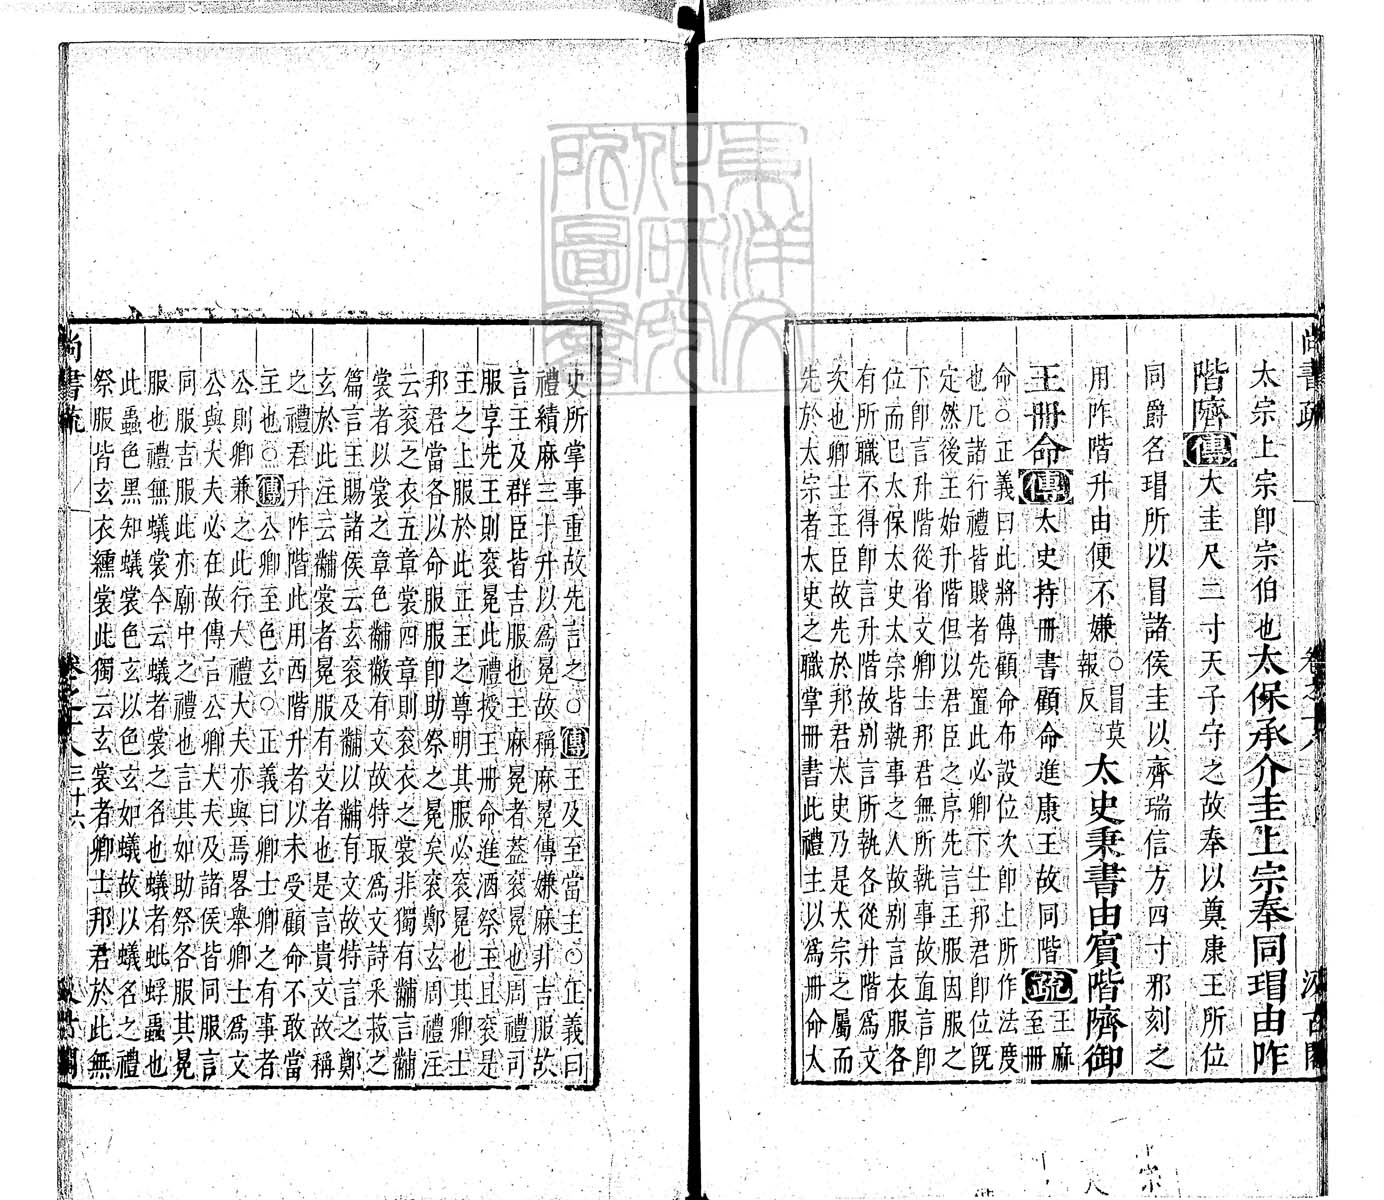 太宗上宗卽宗伯也太保承介圭上宗奉同瑁由阼
階隮傳大圭尺二寸天子守之故奉以奠康王所位
同爵名瑁所以冒諸侯圭以齊瑞信方四寸邪刻之
用阼階升由便不嫌○冒莫報反太史秉書由賓階隮御
王冊命傳太史持冊書顧命進康王故同階疏王麻至冊
命○正義曰此將傳顧命布設位次卽上所作法度
也凡諸行禮皆賤者先置此必卿下士邦君卽位旣
定然後王始升階但以君臣之序先言王服因服之
下卽言升階從省文卿士邦君無所執事故直言卽
位而已太保太史太宗皆執事之人故別言衣服各
有所職不得卽言升階故別言所執各從升階爲文
次也卿士王臣故先於邦君太史乃是太宗之屬而
先於太宗者太史之職掌冊書此禮主以爲冊命太
史所掌事重故先言之○傳王及至當主○正義曰
禮績麻三十升以爲冕故稱麻冕傳嫌麻非吉服故
言王及群臣皆吉服也王麻冕者蓋袞冕也周禮司
服享先王則袞冕此禮授王冊命進酒祭王且袞是
王之上服於此正王之尊明其服必袞冕也其卿士
邦君當各以命服服卽助祭之冕矣袞鄭玄周禮注
云袞之衣五章裳四章則袞衣之裳非獨有黼言黼
裳者以裳之章色黼黻有文故特取爲文詩采菽之
篇言王賜諸侯云玄袞及黼以黼有文故特言之鄭
玄於此注云黼裳者冕服有文者也是言貴文故稱
之禮君升阼階此用西階升者以未受顧命不敢當
主也○傳公卿至色玄○正義曰卿士卿之有事者
公則卿兼之此行大禮大夫亦與焉畧舉卿士爲文
公與大夫必在故傳言公卿大夫及諸侯皆同服言
同服吉服此亦廟中之禮也言其如助祭各服其冕
服也禮無蟻裳今云蟻者裳之名也蟻者蚍蜉蟲也
此蟲色黑知蟻裳色玄以色玄如蟻故以蟻名之禮
祭服皆玄衣纁裳此獨云玄裳者卿士邦君於此無
尚書疏
卷之十八
三十六
汲古閣